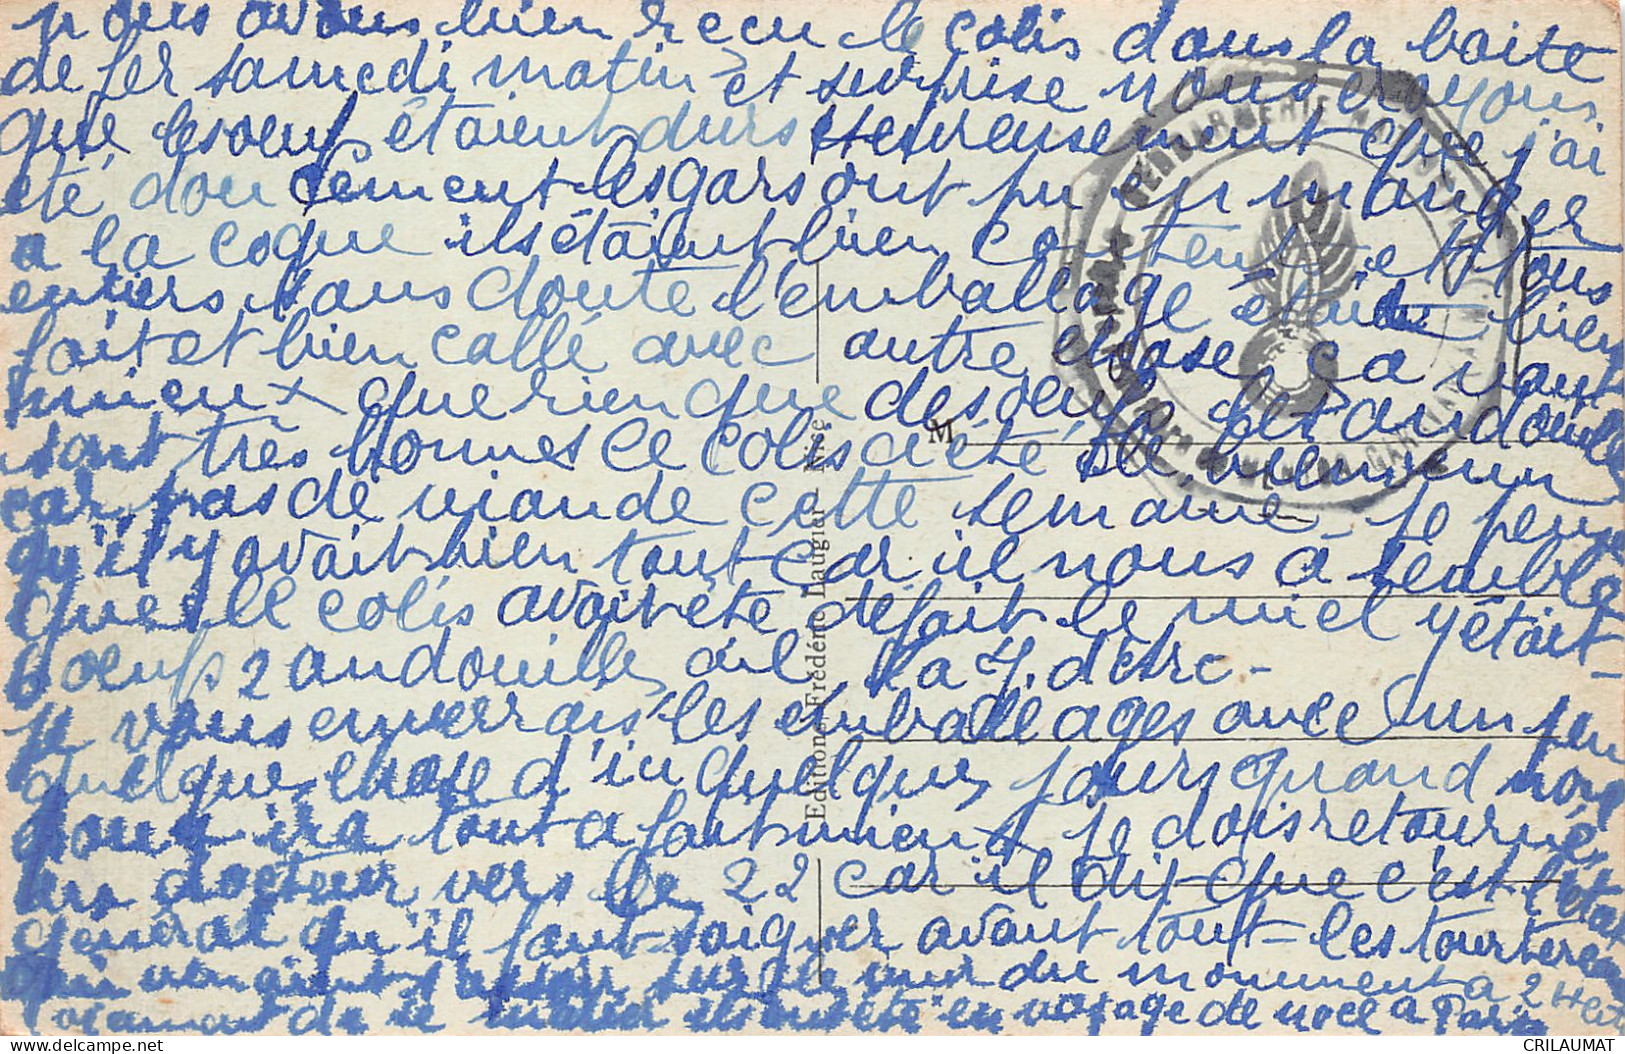 nous avons bien recu le colis dans la boite
de fer samedi matin et surprise nous croyons
que les oeuf étaient durs Heureusement que j'ai
été doucement les gars ont pu en manger
a la coque ils étaient bien content et tous
entiers sans doute l'emballage était bien
fait et bien callé avec autre chose ça vaut
mieux que rien que des oeufs les andouilles
sont très bonnes ce colis a été le bienvenu
car pas de viande cette semaine je pense
qu'il y avait bien tout car il nous a semblé
que le colis avait été défait le miel y était
6 oeufs 2 andouilles
je vous enverrais les emballages avec un peu
quelque chose d'ici quelques jours quand
ira tout a fait mieux je dois retourner
docteur vers le 22 car il dit que c'est l'état
général qu'il faut soigner avant tout les tourtereaux
qui venaient sur le mur du monument a 2
de se marier ils ont été en voyage de noce a Paris
M
Editions Frédéric Laugier - Nice
GENDARMERIE NATIONALE